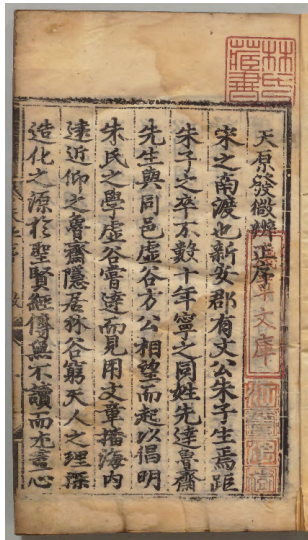 林氏藏書
天原發微辨正序
宋之南渡也新安郡有文公朱子生焉距
朱子之卒不數十年寧之同姓先達魯齋
先生與同邑虛谷方公相望而起以倡明
朱氏之學虛谷嘗達而見用文章播海內
遠近仰之魯齋隱居林谷窮天人之理深
造化之源於聖賢經傳無不讀而